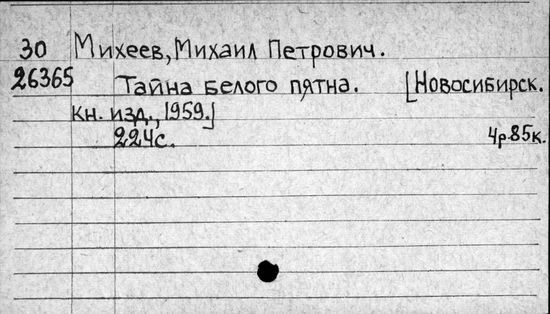 30 Михеев, Михаил Петрович.
26365 Тайна белого пятна. [Новосибирск.
Кн. изд., 1959.]
224с. 4р85к.